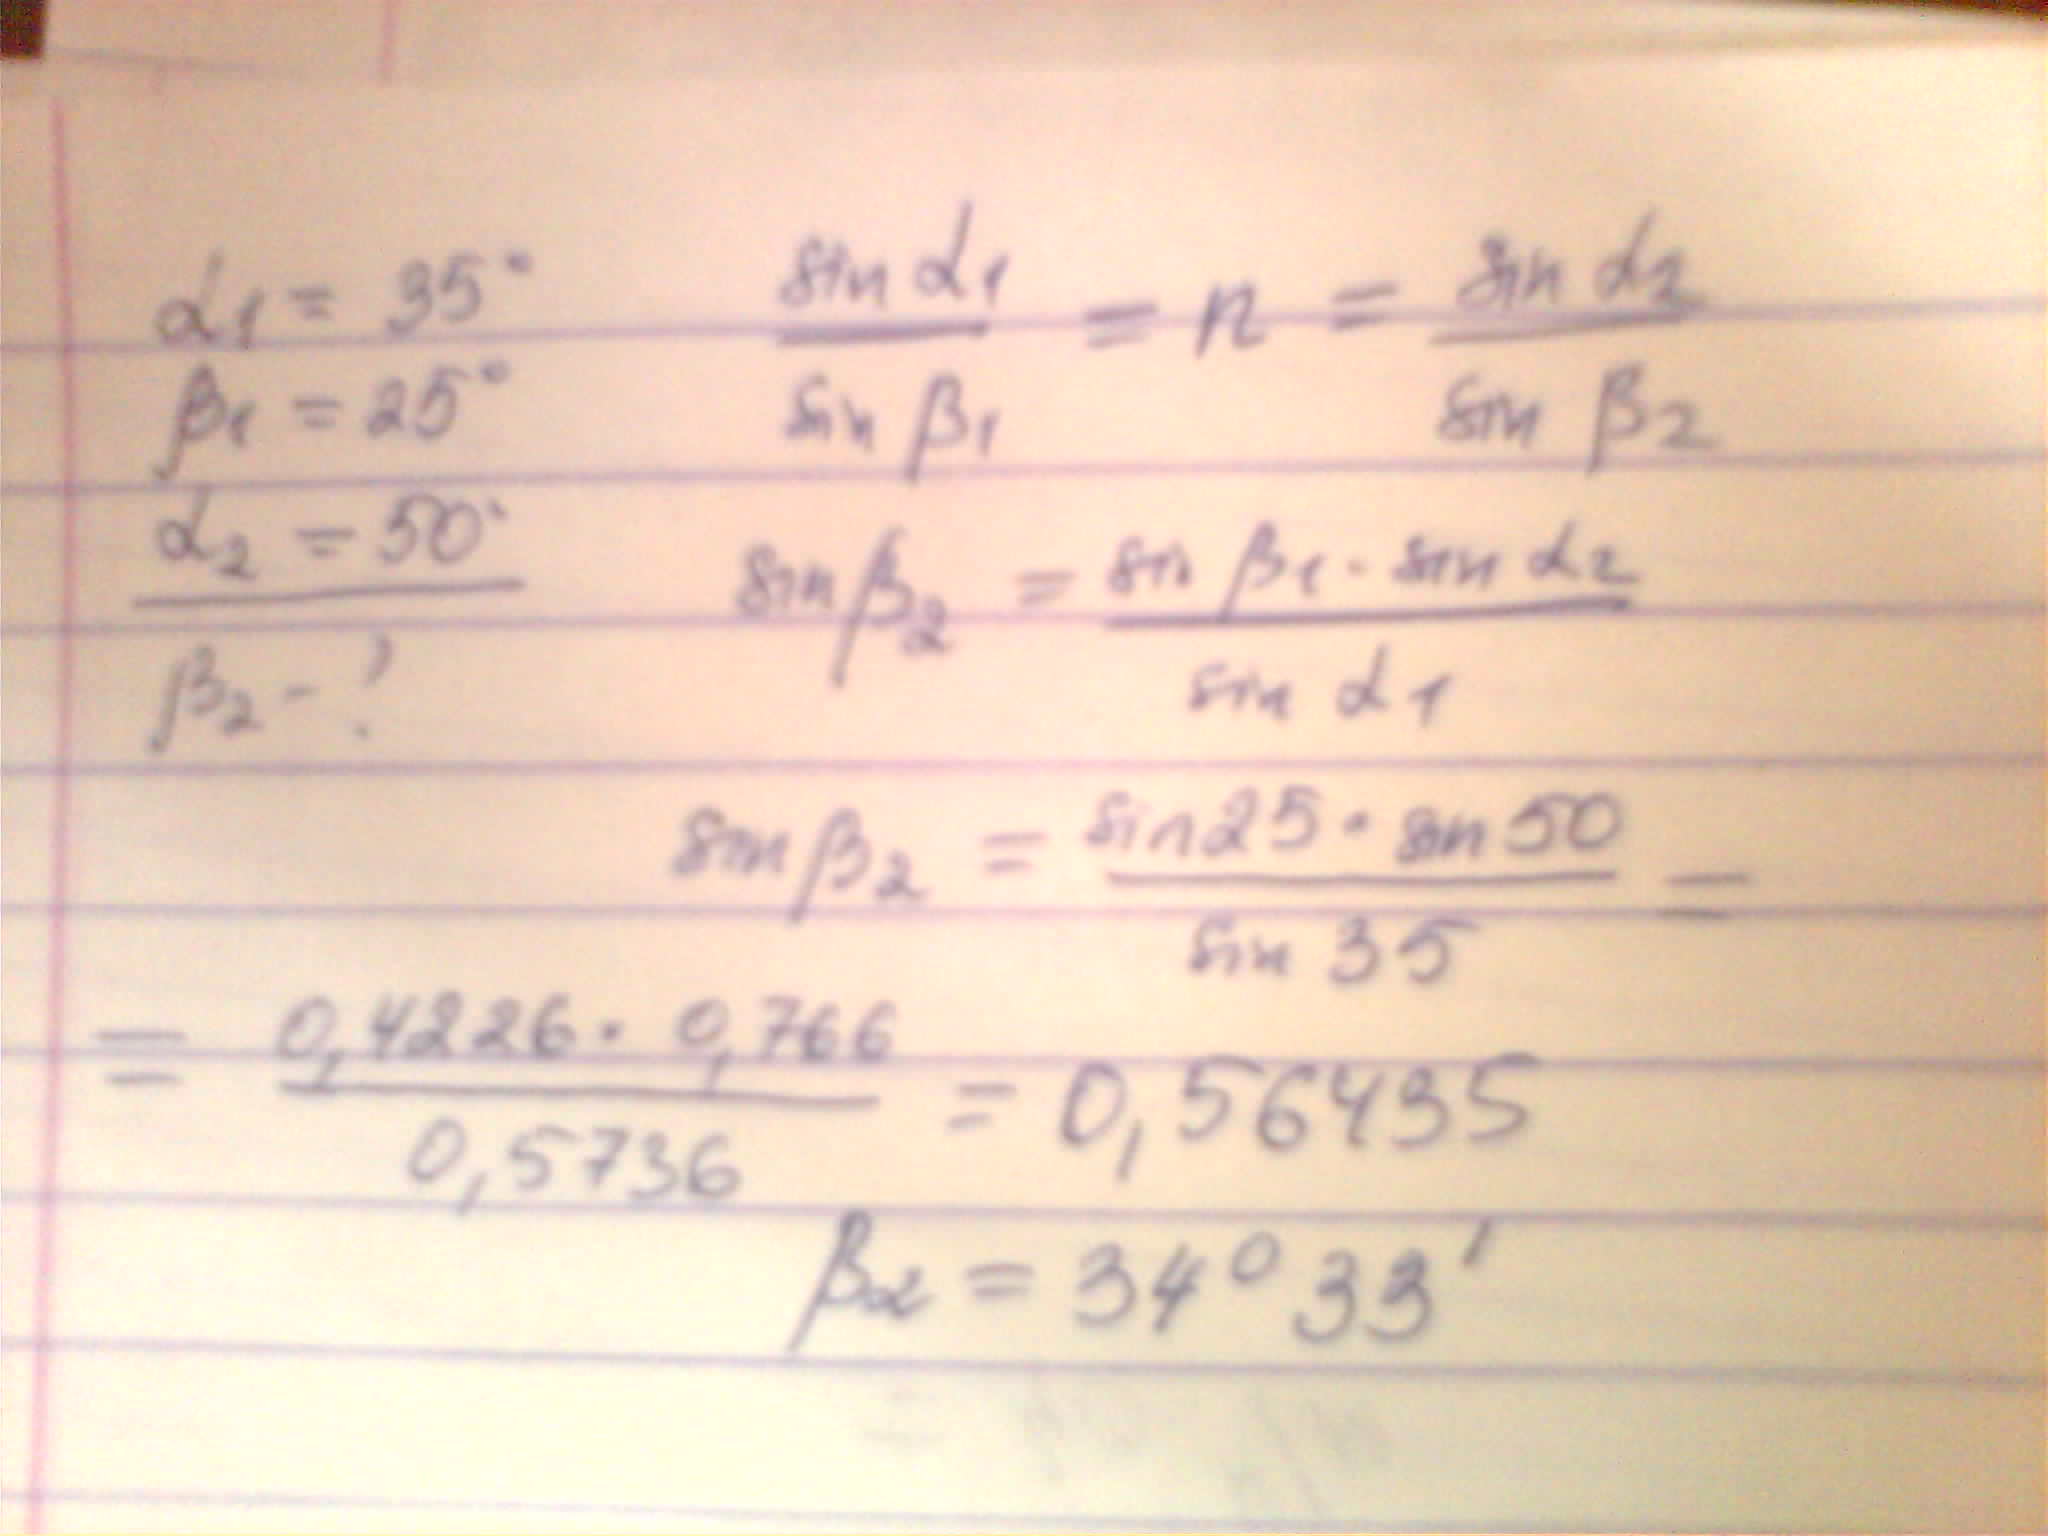 α1 = 35°
β1 = 25°
α2 = 50°
β2 - ?
sin α1 / sin β1 = n = sin α2 / sin β2
sin β2 = sin β1 · sin α2 / sin α1
sin β2 = sin 25 · sin 50 / sin 35 =
= 0,4226 · 0,766 / 0,5736 = 0,56435
β2 = 34° 33'